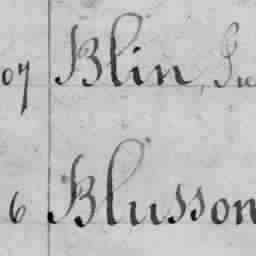 07 Blin, Ju
6 Blusson